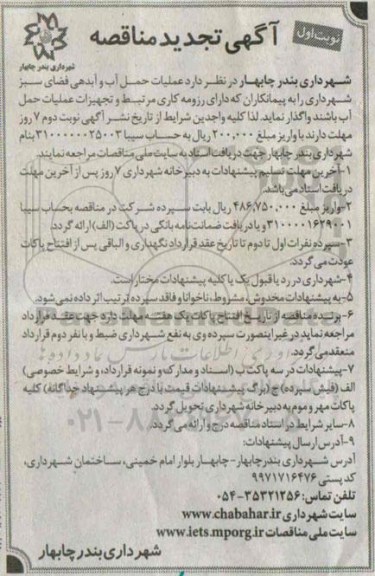 نوبت اول
آگهی تجدید مناقصه
شهرداری بندر چابهار
شهرداری بندر چابهار در نظر دارد عملیات حمل آب و آبدهی فضای سبز
شهرداری را به پیمانکاران که دارای رزومه کاری مرتبط و تجهیزات عملیات حمل
آب باشند واگذار نماید. لذا کلیه واجدین شرایط از تاریخ نشر آگهی نوبت دوم ۷ روز
مهلت دارند با واریز مبلغ ۲۰۰،۰۰۰ ریال به حساب سیبا ۳۱۰۰۰۰۰۰۲۵۰۰۳ بنام
شهرداری بندر چابهار جهت دریافت اسناد به سایت ملی مناقصات مراجعه نمایند.
۱-آخرین مهلت تسلیم پیشنهادات به دبیرخانه شهرداری ۷ روز پس از آخرین مهلت
دریافت اسناد می‌باشد.
۲-واریز مبلغ ۴۸۶،۷۵۰،۰۰۰ ریال بابت سپرده شرکت در مناقصه بحساب سیبا
۳۱۰۰۰۰۱۶۲۹۰۰۱ و یا دریافت ضمانت‌نامه بانکی در پاکت (الف) ارائه گردد.
۳-سپرده نفرات اول تا دوم تا تاریخ عقد قرارداد نگهداری و الباقی پس از افتتاح پاکات
عودت می‌گردد.
۴-شهرداری در رد یا قبول یک یا کلیه پیشنهادات مختار است.
۵-به پیشنهادات مخدوش، مشروط، ناخوانا و فاقد سپرده ترتیب اثر داده نمی‌شود.
۶-برنده مناقصه از تاریخ افتتاح پاکات یک هفته مهلت دارد جهت عقد قرارداد
مراجعه نماید در غیر اینصورت سپرده وی به نفع شهرداری ضبط و با نفر دوم قرارداد
منعقد می‌گردد.
۷-پیشنهادات در سه پاکت ب (اسناد و مدارک و نمونه قرارداد، و شرایط خصوصی)
الف (فیش سپرده) ج (برگ پیشنهادات قیمت با درج هر پیشنهاد جداگانه) کلیه
پاکات مهر و موم به دبیرخانه شهرداری تحویل گردد.
۸-سایر شرایط در اسناد مناقصه درج و ارائه می‌گردد.
۹-آدرس ارسال پیشنهادات:
آدرس شهرداری بندر چابهار- چابهار بلوار امام خمینی، ساختمان شهرداری،
کد پستی ۹۹۷۱۷۱۶۴۷۶
تلفن تماس: ۳۵۳۲۱۲۵۶-۰۵۴
سایت شهرداری www.chabahar.ir
سایت ملی مناقصات www.iets.mporg.ir
شهرداری بندر چابهار